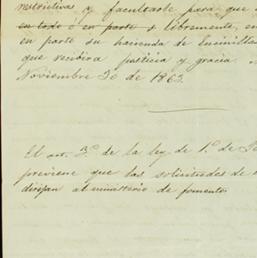 restrictiva y facultarle para que
en todo ó en parte y libremente, en
en parte su hacienda de Encinillas
que recibirá justicia y gracia.
Noviembre 30 de 1863.
El art. 3.º de la ley de 1.º de
previene que las solicitudes de
dirijan al ministerio de fomento